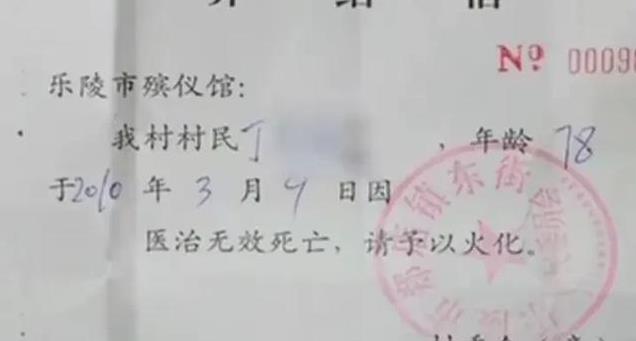 介绍信
No 0009
乐陵市殡仪馆:
我村村民丁 ，年龄 78
于2010年3月9日因
医治无效死亡，请予以火化。
镇东街